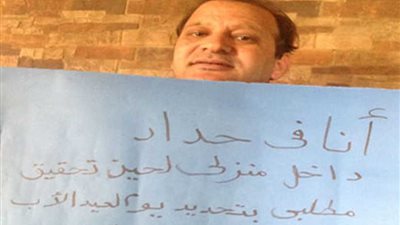 أنا فى حداد
داخل منزلى لحين تحقيق
مطلبى بتحديد يوم لعيد الأب